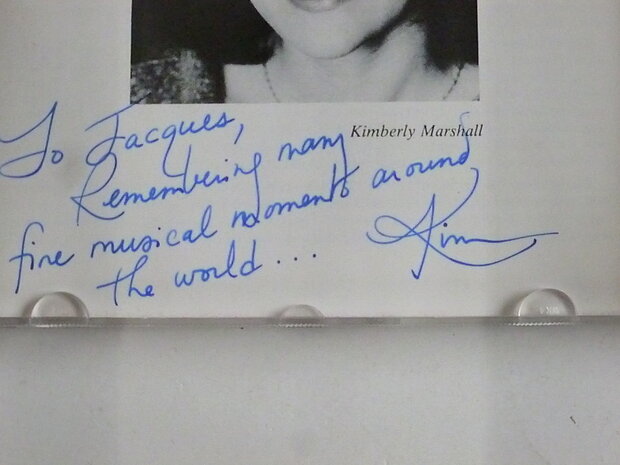 Kimberly Marshall
To Jacques,
Remembering many
fine musical moments around
the world...
Kim